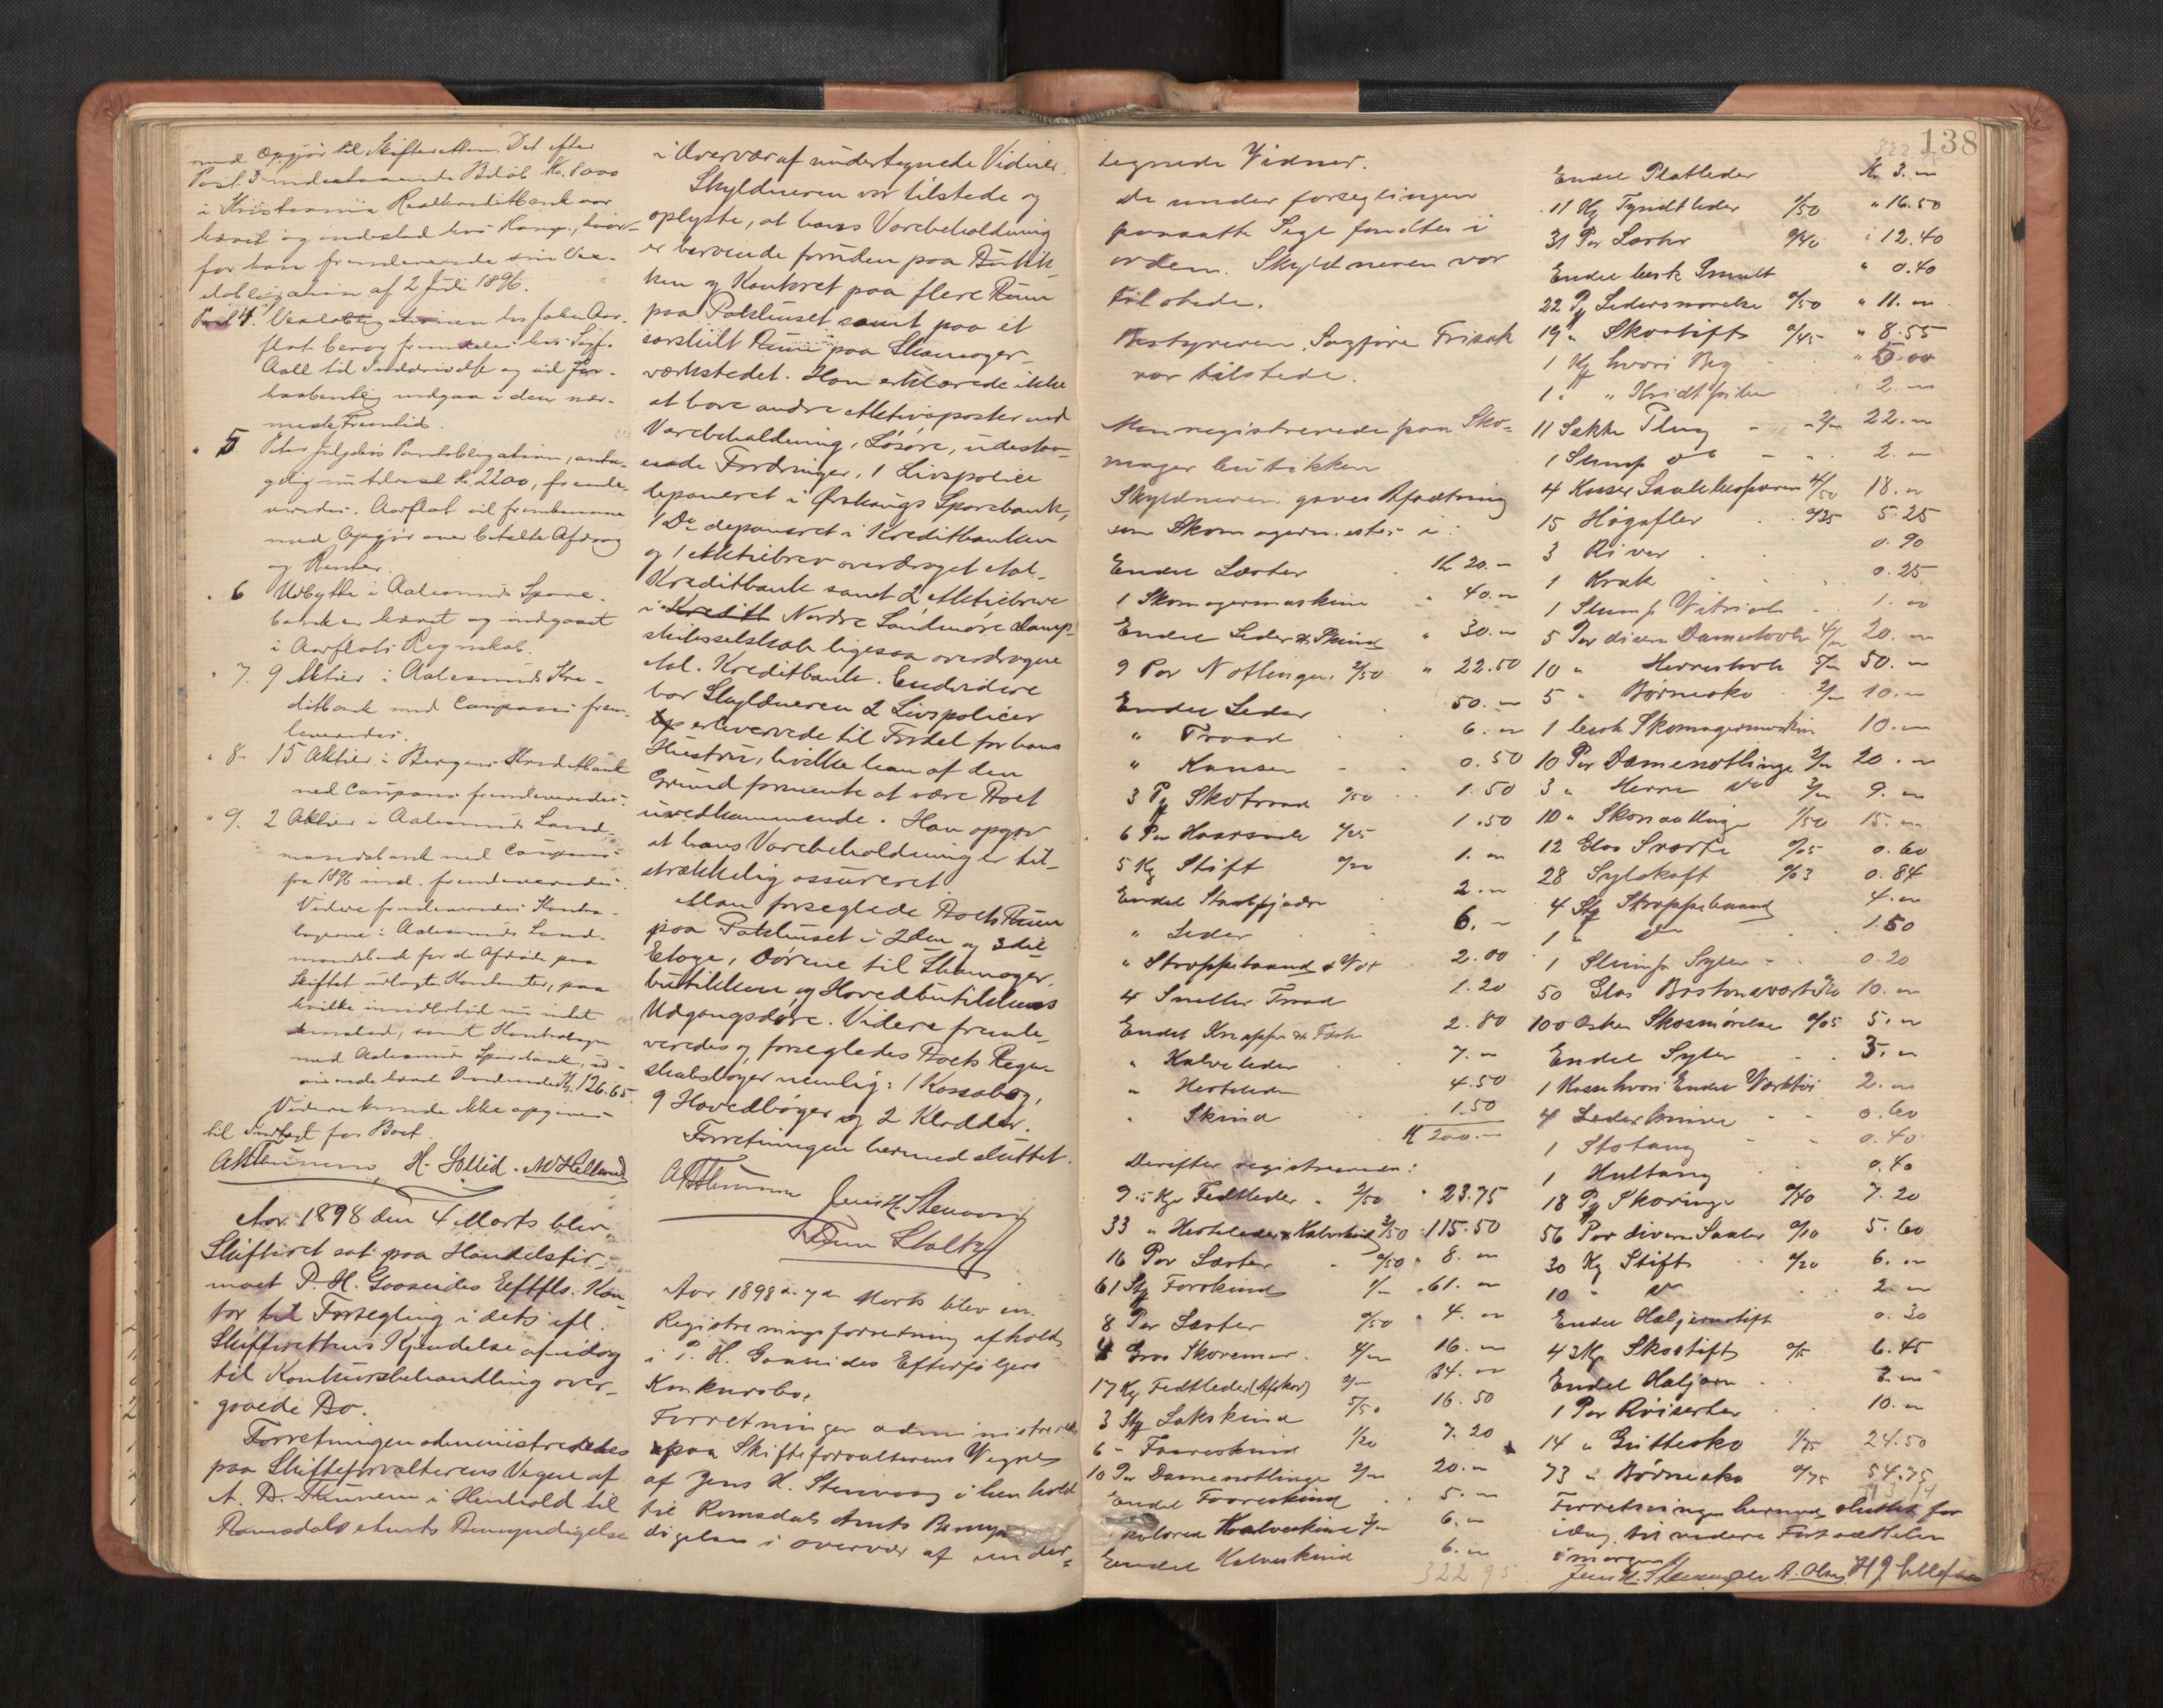 med Opgjør til Skifteretten. Det efter
Post 3 indestaaende Beløb Kr. 1000
i Kristiania Realkreditbank var
hævet og indestod hos Komp., hvor-
for han fremleverede sin Vex-
elobligation af 2 Juli 1896.
Post 4. Vexelobligationen hos John Aar-
flot beror fremdeles hos Sagf.
Aall til Inddrivelse og vil for-
haabentlig indgaa i den nær-
meste Fremtid.
" 5. Peter Julsebös Panteobligation, anta-
gelig nu til rest kr. 2200, fremle-
veredes. Aarflot vil fremkomme
med Opgjør over betalte Afdrag
og Renter.
" 6 Udbytte i Aalesunds Spare-
bank er hævet og indgaaet
i Aarflots Regnskab.
" 7. 9 Aktier i Aalesunds Kre-
ditbank med Coupons frem-
leveredes.
" 8. 15 Aktier i Bergens Kreditbank
med Coupons fremleveredes.
" 9. 2 Aktier i Aalesunds Land-
mandsbank med Coupons
fra 1896 incl. fremleveredes.
Videre fremleveredes Kontra-
bøgerne i Aalesunds Land-
mandsbank for de Afdøde paa
Skiftet udlagte Kontanter, paa
hvilke imidlertid nu intet
indestod, samt Kontrabogen
med Aalesunds Sparebank, ud-
visende Kr. 126.65.
Videre kunde ikke opgives
til Indtægt for Boet.
AThunem H. Sollid. M Helland
Aar 1898 den 4 Marts blev
Skifteret sat paa Handelsfir-
maet P. H. Gaaseides Eftfls. Kon-
tor til Forsegling i dets ifl.
Skifterettens Kjendelse af idag
til Konkursbehandling over-
gaaede Bo.
Forretningen administreredes
paa Skifteforvalterens Vegne af
A. B. Thunem i Henhold til
Romsdals Amts Bemyndigelse
i Overvær af undertegnede Vidner.
Skyldneren var tilstede og
oplyste, at hans Varebeholdning
er beroende foruden paa Butik-
ken og Kontoret paa flere Rum
paa Pakhuset samt paa et
særskilt Rum paa Skomager-
værkstedet. Han erklærede ikke
at have andre Aktivaposter end
Varebeholdning, Løsøre, udestaa-
ende Fordringer, 1 Livspolice
deponeret i Ørskougs Sparebank,
1 Do deponeret i Kreditbanken
og 1 Aktiebrev overdraget Aal.
Kreditbank samt 2 Aktiebreve
i Kreditb Nordre Søndmøre Damp-
skibsselskab ligesaa overdragne
Aal. Kreditbank. Endvidere
har Skyldneren 2 Livspolicer
erhvervede til Fordel for hans
Hustru, hvilke han af den
Grund formente at være Boet
uvedkommende. Han opgav
at hans Varebeholdning er til-
strækkelig assureret.
Man forseglede Boets Rum
paa Pakhuset i 2den og 3die
Etage, Dørene til Skomager-
butikken og Hovedbutikkens
Udgangsdøre. Videre fremle-
veredes og forsegledes Boets Regn-
skabsbøger nemlig: 1 Kassabog,
9 Hovedbøger og 2 Kladder.
Forretningen hermed sluttet.
AThunem Jens H. Stenvaag
Stoltz
Aar 1898 d. 7de Marts blev en
Registreringsforretning afholdt
i P. H. Gaaseides Efterfølgers
Konkursbo.
Forretningen administreredes
paa Skifteforvalterens Vegne
af Jens H. Stenvaag i henhold
til Romsdals Amts Bemyn-
digelse i overvær af under-
138
tegnede Vidner.
De under forseglingen
paasatte Segl fandtes i
orden. Skyldneren var
tilstede.
Bestyreren, Sagfører Frisak
var tilstede.
Man registrerede paa Sko-
mager butikken
Skyldneren gaves Afsætning
som Skomagermester i:
Endel Læster Kr 20. -
1 Skomagermaskine " 40. -
Endel Leder & Skind " 30. -
9 Par Notlinger 2/50 " 22.50
Endel Leder 50. -
" Traad 6. -
" Kanser 0.50
3 Pg Skotraad 0/50 1.50
6 Par Haarsaale 0/25 1.50
5 Kg Stift 0/20 1. -
Endel Staalfjedre 2. -
" Leder 6. -
" Stroppebaand & Vox 2.00
4 Sneller Traad 1.20
Endel Knapper & 2.80
" Kalveleder 7. -
" Hesteleder 4.50
" Skind 1.50
Kr 200. -
Derefter registreredes:
9.5 Kgr Fedtleder 2/50 " 23.75
33 " Hesteleder & Kalveskind 3/50 115.50
16 Par Læster 0/50 " 8. -
61 Stk Forskind 1/- 61. -
8 Par Læster 0/50 " 4. -
4 Gros Skoremer 4/- 16. -
17 Kg Fedtleder (Afskor) 2/- 34. -
3 Stk Lakskind 5/50 16.50
6 " Faareskind 1/20 7.20
10 Par Damenotlinge 2/- 20. -
Endel Faareskind 5. -
kulørede Kalveskind 3/- 6. -
Endel Kalveskind 6. -
322 95
Endel Platleder Kr 3. -
11 Kg Tyndtleder 1/50 " 16.50
31 Par Læster 0/40 " 12.40
Endel besk Smult " 0.40
22 Pg Ledersnørelse 0/50 " 11. -
19 " Skostift 0/45 " 8.55
1 Kg hvori Beg " 5.00
1 " " Kridt 2. -
11 Sække Plug 2/- 22. -
1 Slump do 2. -
4 Kasser 4/50 18. -
15 Høgafler 0/35 5.25
3 River 0.90
1 Krak 0.25
1 Slump Vitriol 1.00
5 Par diverse Damestøvle 4/- 20. -
10 " Herrestøvle 5/- 50. -
5 " Børnesko 2/- 10. -
1 besk Skomagermaskin 10. -
10 Par Damenotlinge 2/- 20. -
3 " Herre do 3/- 9. -
10 " 1/50 15. -
12 Glas Sværte 0/05 0.60
28 Sylskaft 0/03 0.84
4 Stk Stroppebaand 4. -
1 " do 1.50
1 Slump Syler 0.20
50 Glas Bostonsværte 0/20 10. -
100 Æsker Skosmørelse 0/05 5. -
Endel Syler 3. -
1 Kasse hvori Endel Værktøi 2. -
4 Lederknive 0.60
1 Stotang 0.40
1 Hultang 0.40
18 Pg Skoringe 0/40 7.20
56 Par diverse Saaler 0/10 5.60
30 Kg Stift 0/20 6. -
10 " do 2. -
Endel Hæljernstift 0.30
43 Kg Skostift 0/15 6.45
Endel Hæljern 3. -
1 Par Røiserter 10. -
14 " Guttesko 1/75 24.50
73 " Børnesko 0/75 54.75
Forretningen hermed sluttet for
idag til videre Fortsættelse
imorgen
Jens H. Stenvaag A. Olsen H J Ellefsen